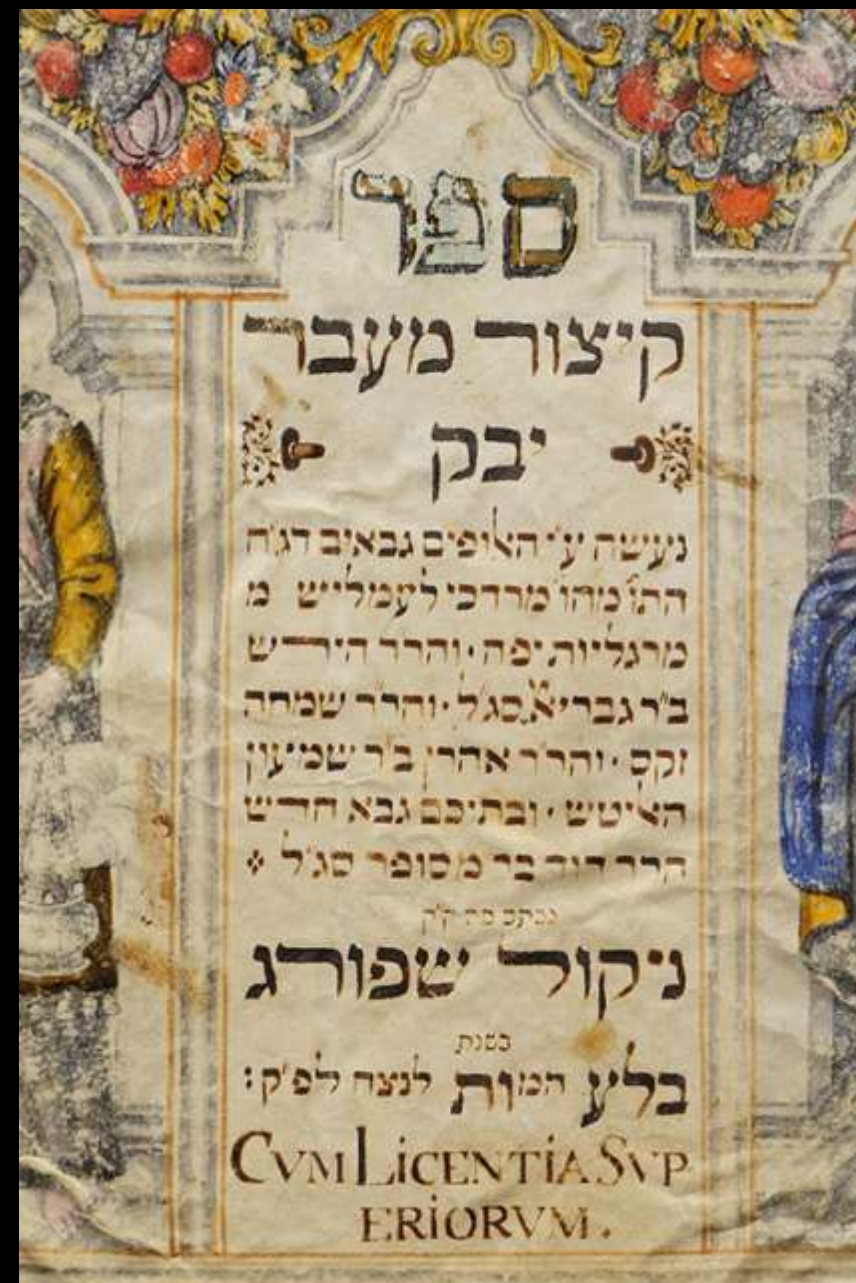 ספר
קיצור מעבר
יבק
נעשה ע״י האלופים גבאים דג״ח
התו׳ מהו׳ מרדכי לעמליש מ
מרגליות יפה · והרר הירש
ב״ר גבריא״ל סג״ל · והר״ר שמחה
זקס · והר״ר אהרן ב״ר שמעון
האיטש · ובתיכם גבא חדש
הרר דוד בר מסופר סג״ל
פה ק״ק
ניקול שפורג
בשנת
בלע המות לנצח לפ״ק:
CVM LiCENTiA SVP
ERiORVM.